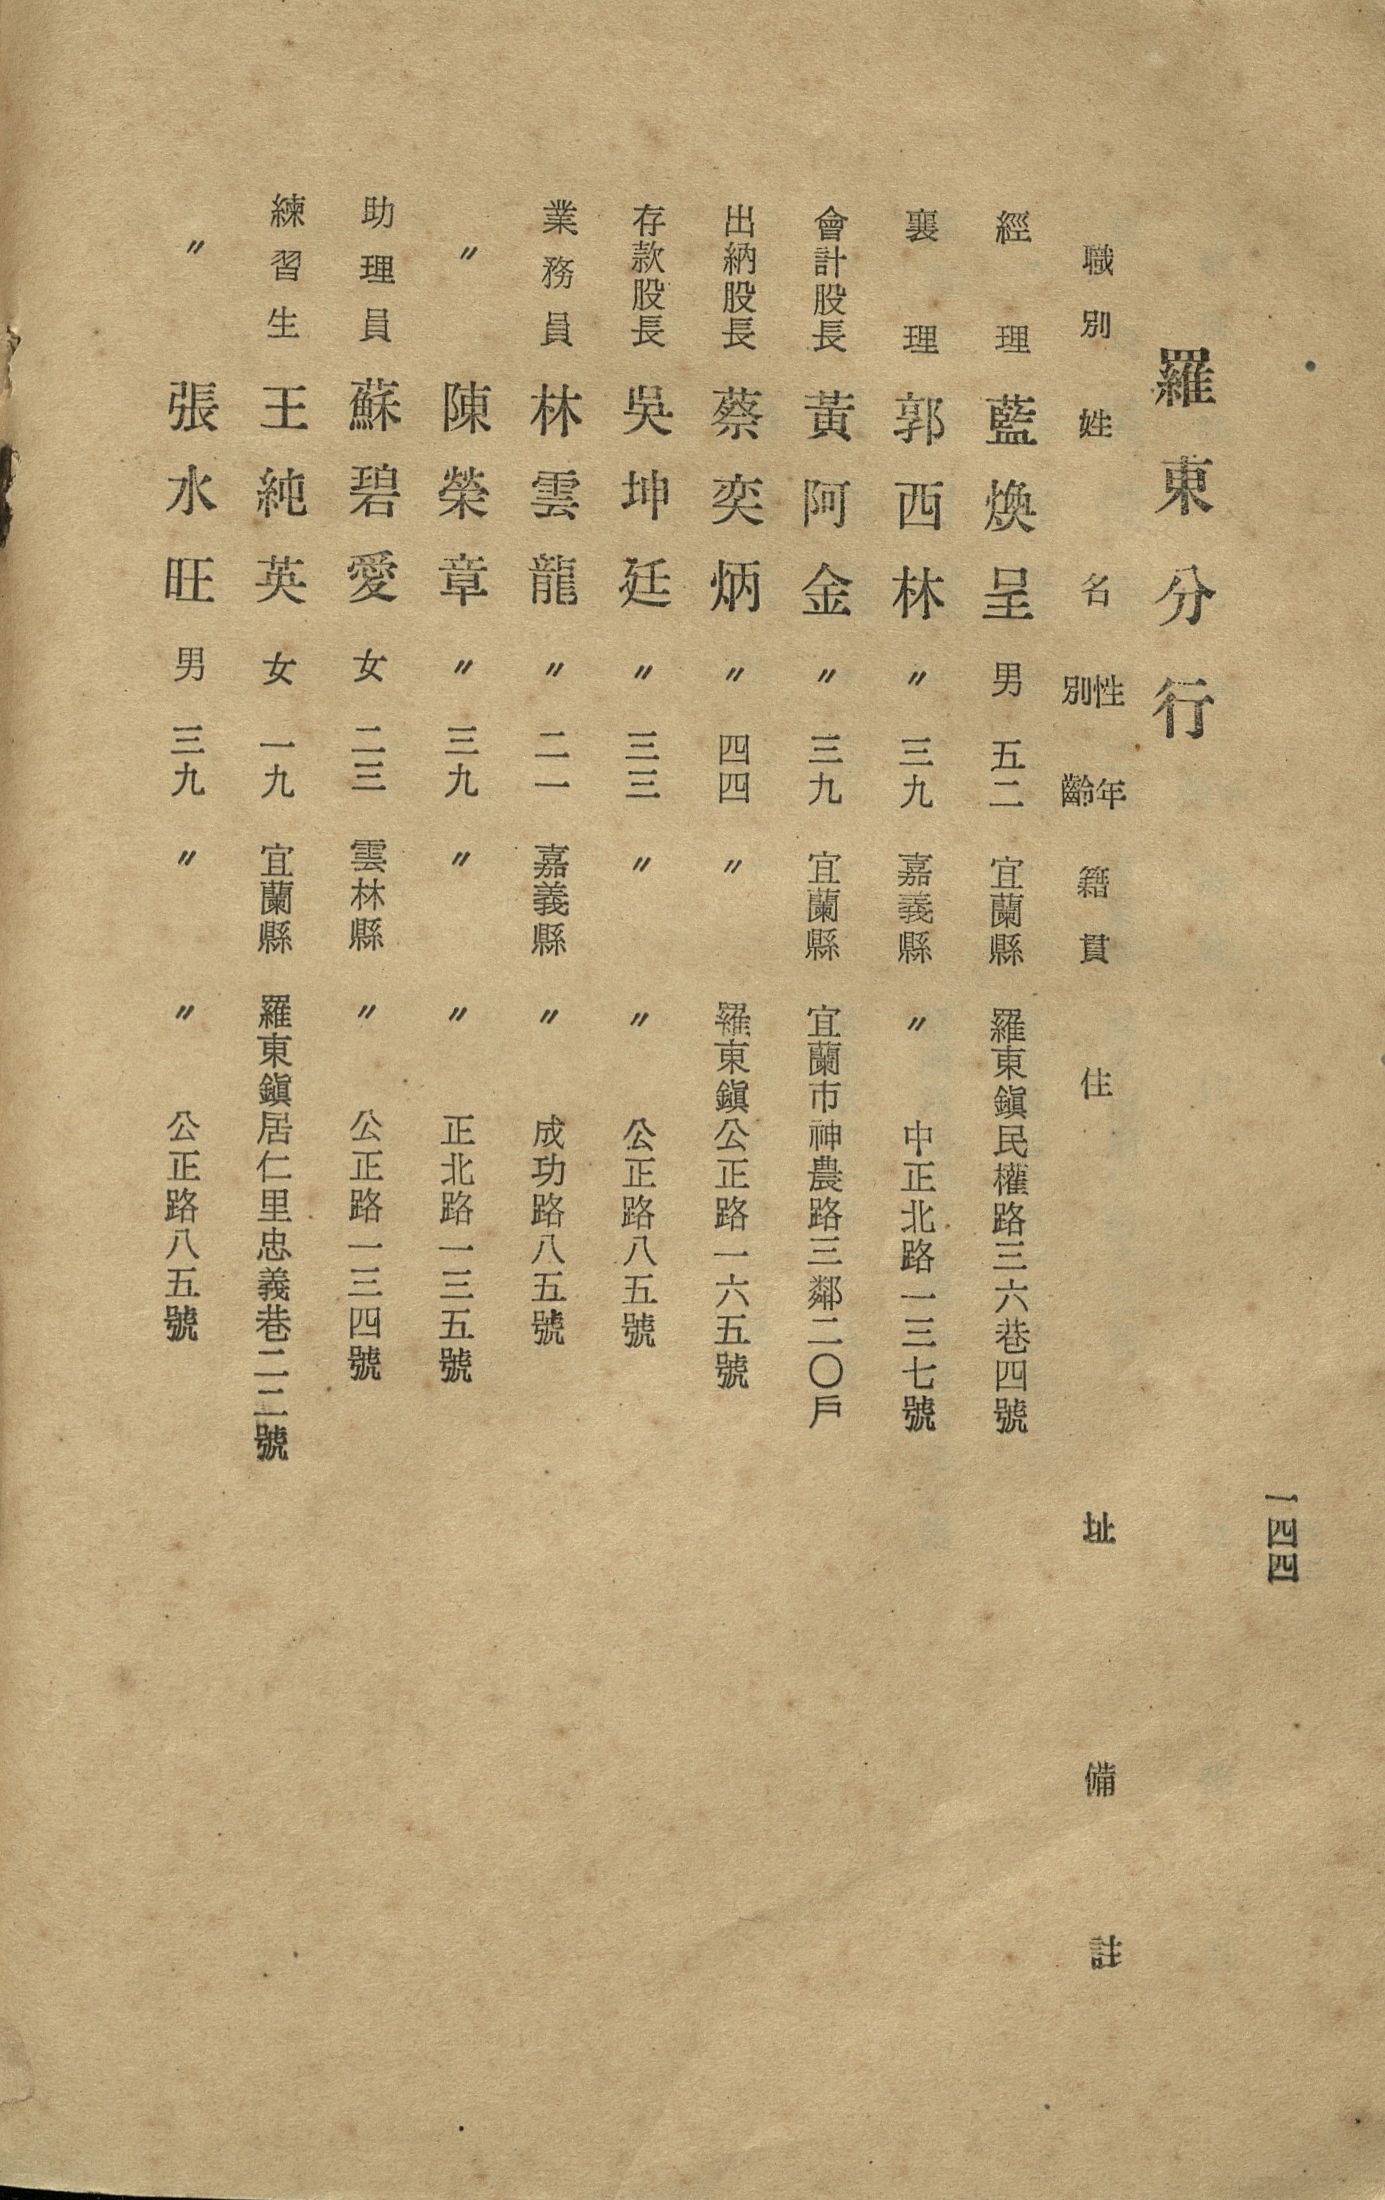 一四四
羅東分行
職別 姓名 性別 年齡 籍貫 住址 備註
經理 藍煥呈 男 五二 宜蘭縣 羅東鎭民權路三六巷四號
襄理 郭西林 〃 三九 嘉義縣 〃 中正北路一三七號
會計股長 黃阿金 〃 三九 宜蘭縣 宜蘭市神農路三鄰二〇戶
出納股長 蔡奕炳 〃 四四 〃 羅東鎭公正路一六五號
存款股長 吳坤廷 〃 三三 〃 〃 公正路八五號
業務員 林雲龍 〃 二一 嘉義縣 〃 成功路八五號
〃 陳榮章 〃 三九 〃 〃 正北路一三五號
助理員 蘇碧愛 女 二三 雲林縣 〃 公正路一三四號
練習生 王純英 女 一九 宜蘭縣 羅東鎭居仁里忠義巷二二號
〃 張水旺 男 三九 〃 〃 公正路八五號